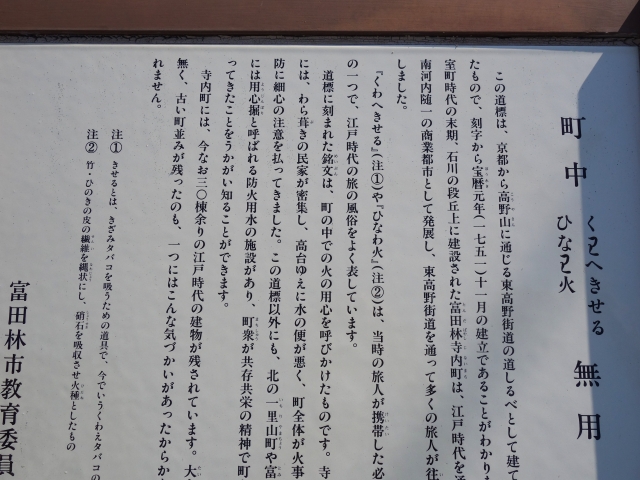 町中 くわへきせる 無用
ひなわ火
この道標は、京都から高野山に通じる東高野街道の道しるべとして建て
たもので、刻字から宝暦元年(一七五一)十一月の建立であることがわかりま
室町時代の末期、石川の段丘上に建設された富田林寺内町は、江戸時代を通
南河内随一の商業都市として発展し、東高野街道を通って多くの旅人が往
しました。
『くわへきせる』(注①)や『ひなわ火』(注②)は、当時の旅人が携帯した必
の一つで、江戸時代の旅の風俗をよく表しています。
道標に刻まれた銘文は、町の中での火の用心を呼びかけたものです。寺
には、わら葺きの民家が密集し、高台ゆえに水の便が悪く、町全体が火事
防に細心の注意を払ってきました。この道標以外にも、北の一里山町や富
には用心堀と呼ばれる防火用水の施設があり、町衆が共存共栄の精神で町
ってきたことをうかがい知ることができます。
寺内町には、今なお三〇棟余りの江戸時代の建物が残されています。大
無く、古い町並みが残ったのも、一つにはこんな気づかいがあったからか
れません。
注① きせるとは、きざみタバコを吸うための道具で、今でいうくわえタバコの
注② 竹・ひのきの皮の繊維を縄状にし、硝石を吸収させ火種としたもの
富田林市教育委員